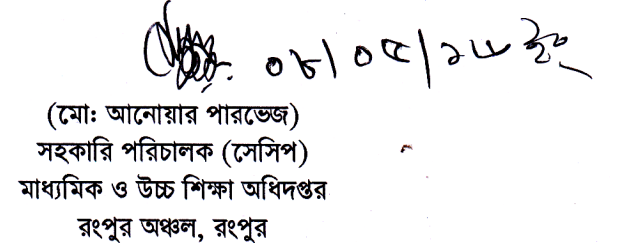 ০৮/০৫/১৮ ইং
(মো: আনোয়ার পারভেজ)
সহকারি পরিচালক (সেসিপ)
মাধ্যমিক ও উচ্চ শিক্ষা অধিদপ্তর
রংপুর অঞ্চল, রংপুর